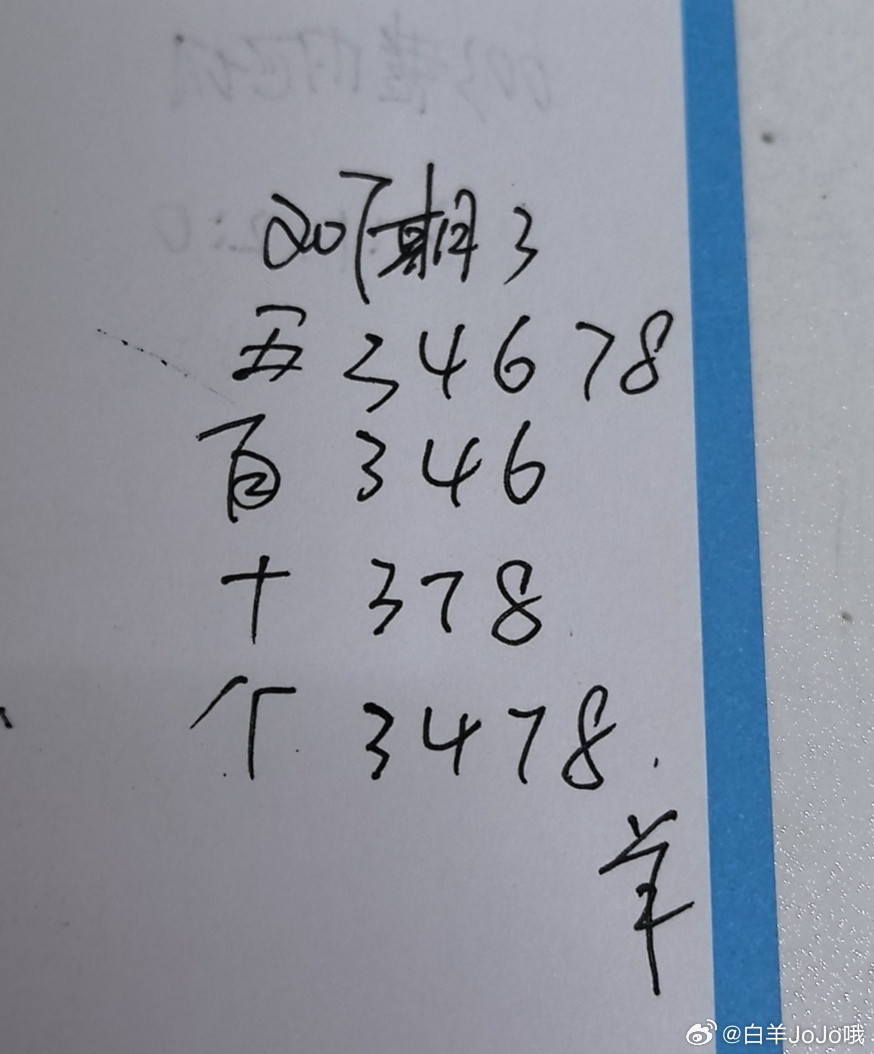 207期 3
五 3 4 6 7 8
百 3 4 6
十 3 7 8
个 3 4 7 8 .
羊
@白羊JoJo哦